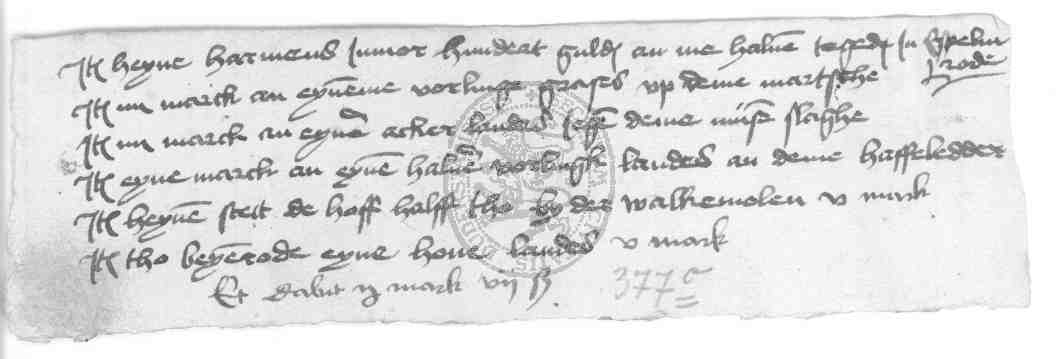 Itẽ heyne harmens Junior hundert guldẽ an me haluẽ in
rode
Itẽ iiii marck an eynẽme vorlinge grases vp deme martsche
Itẽ iiii marck an eynẽ acker landes deme
Itẽ eyne marck an eynẽ haluẽ vorlingk landes an deme haffeledder
Itẽ heynẽ steit de hoff halff tho by der walkemolen v mark
Itẽ tho beyẽrode eyne houe landes v mark
Et dabit mark vij ß
377 c